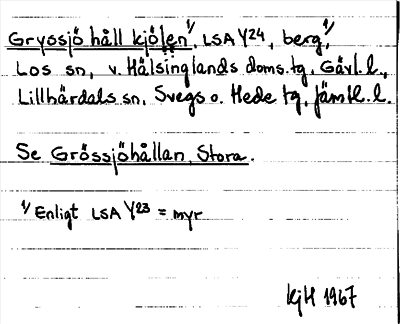 Gryssjö håll kjölen 1/, LSA Y24, berg, 1/
Los sn, v. Hälsinglands doms.tg, Gävl.l.,
Lillhärdals sn, Svegs o. Hede tg, Jämtl.l.
Se Grössjöhållan, Stora.
1/ Enligt LSA Y23 = myr
KjH 1967